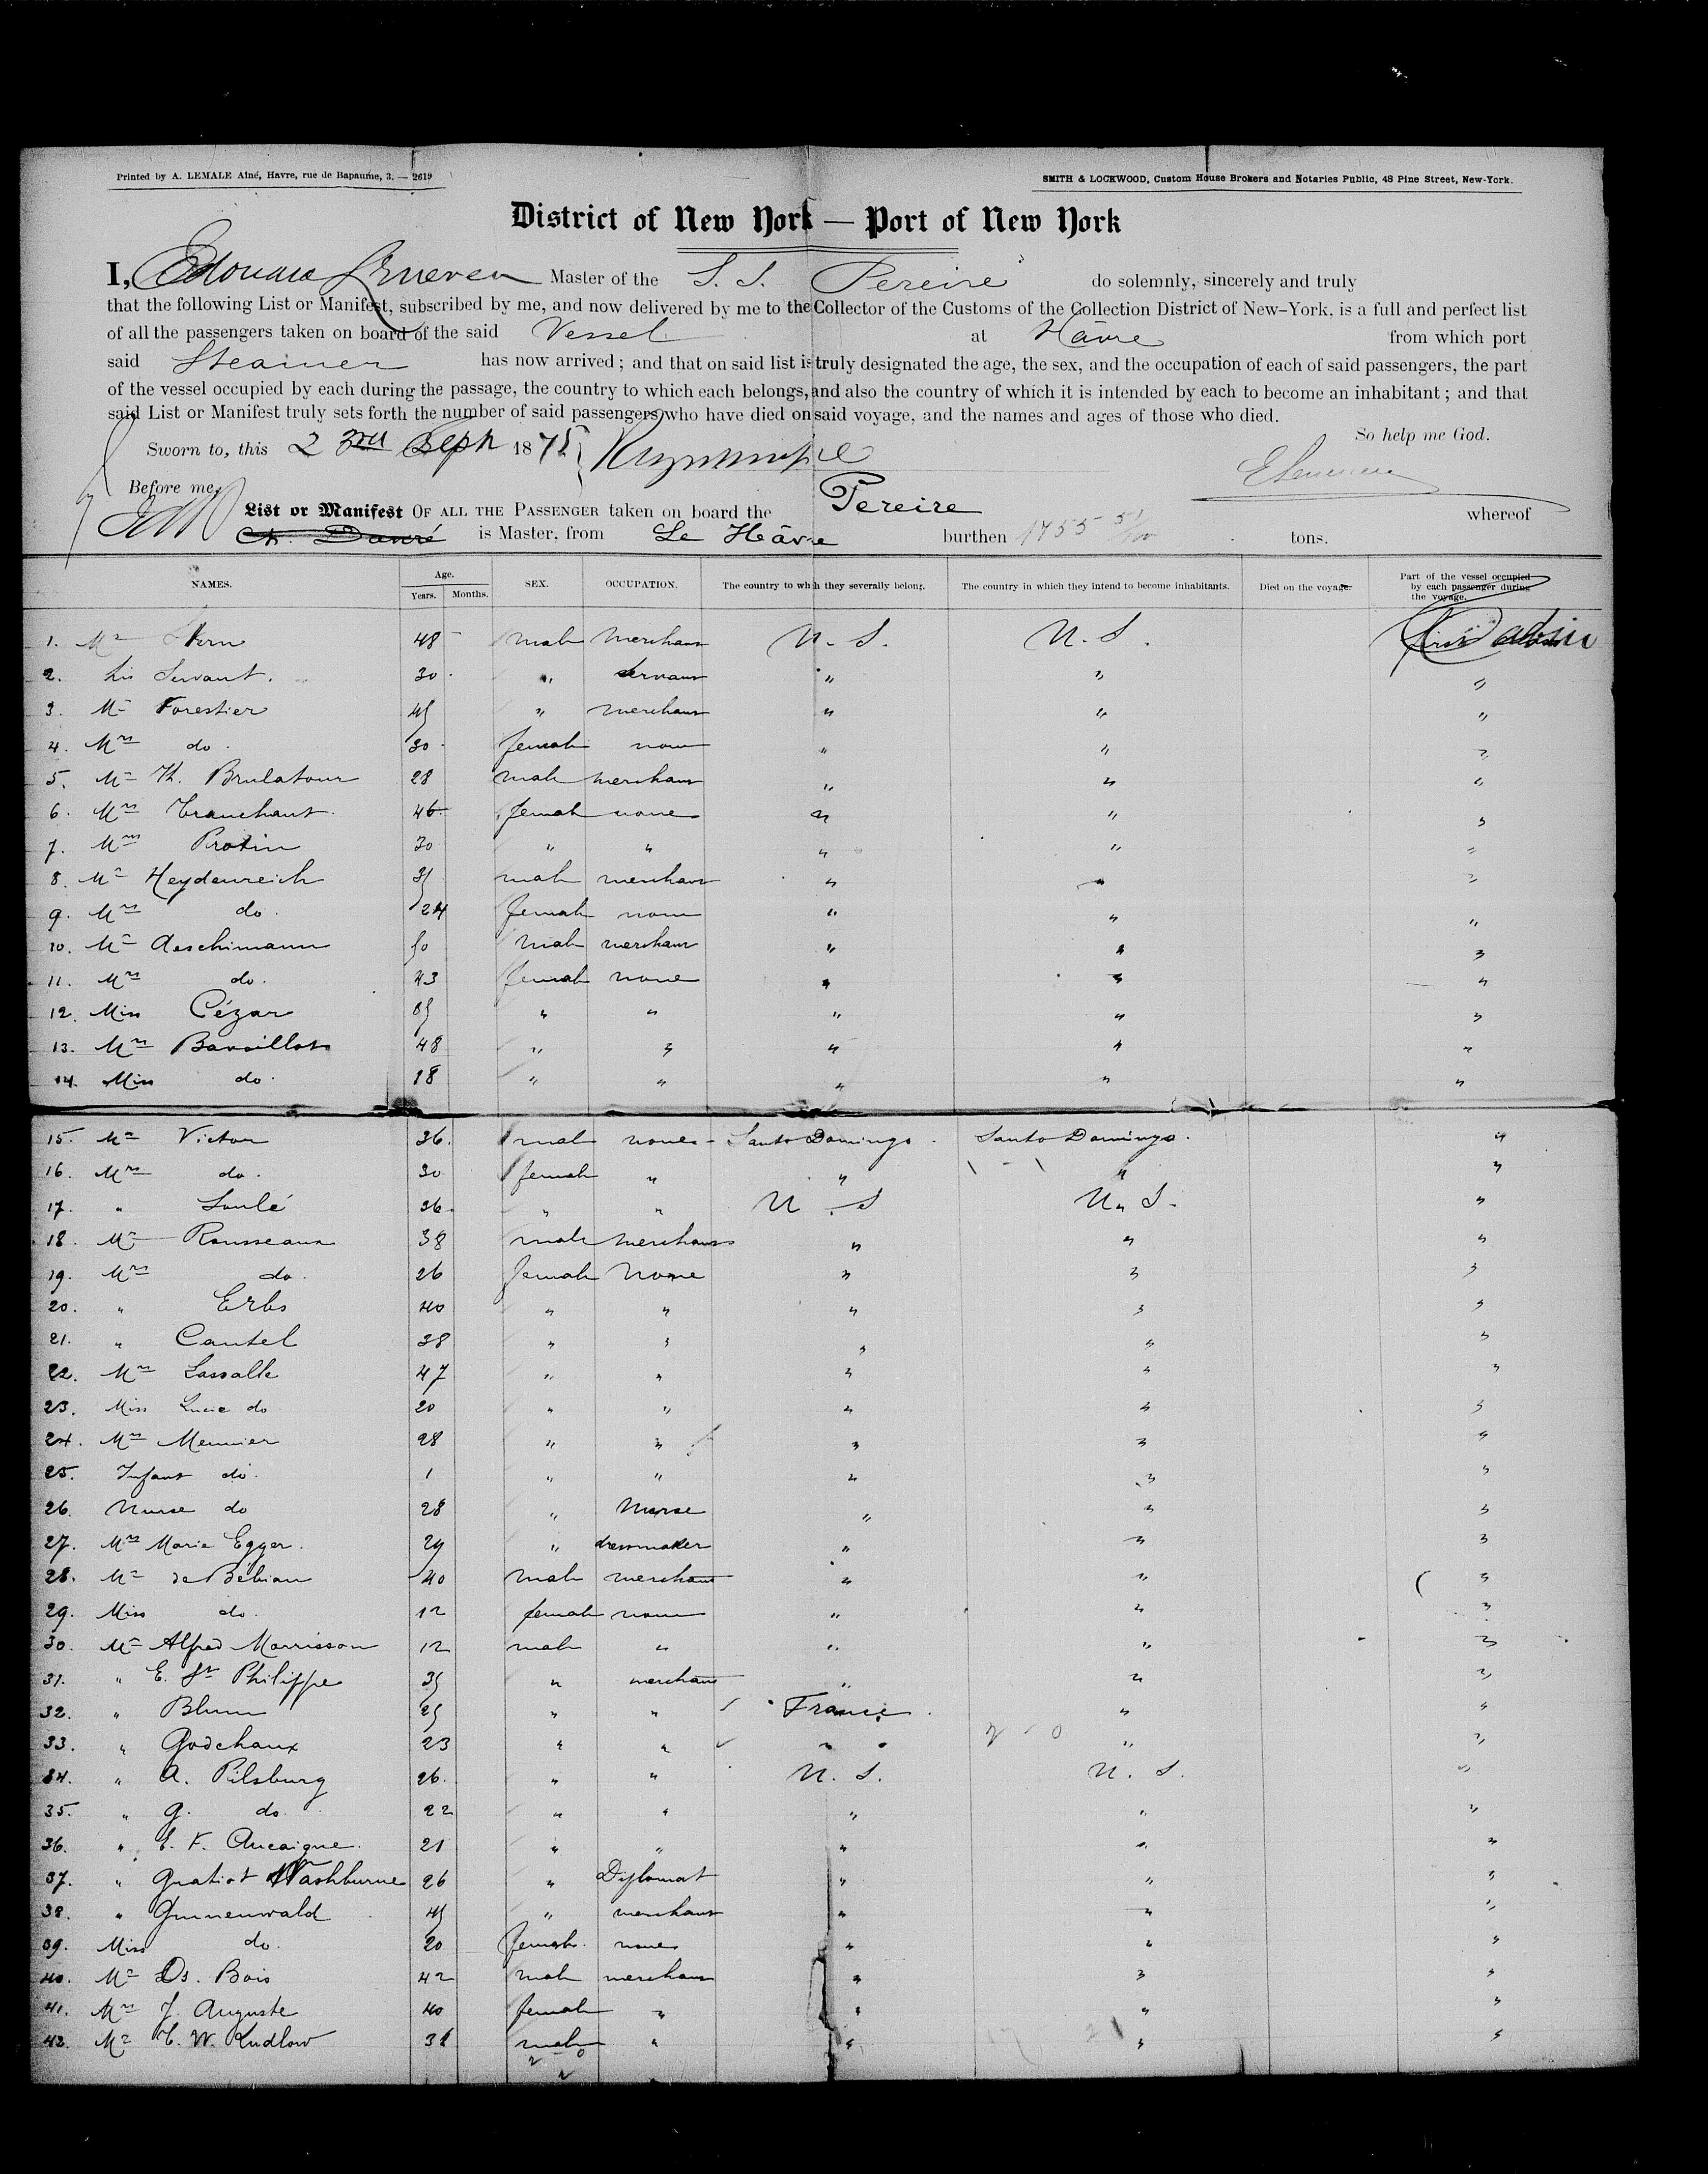 Printed by A. LEMALE Aîné, Havre, rue de Bapaume, 3. — 2619
SMITH & LOCKWOOD, Custom House Brokers and Notaries Public, 48 Pine Street, New-York.
District of New York — Port of New York
I, Edouard Master of the S. S. Pereire do solemnly, sincerely and truly
that the following List or Manifest, subscribed by me, and now delivered by me to the Collector of the Customs of the Collection District of New-York, is a full and perfect list
of all the passengers taken on board of the said Vessel at Hâvre from which port
said Steamer has now arrived; and that on said list is truly designated the age, the sex, and the occupation of each of said passengers, the part
of the vessel occupied by each during the passage, the country to which each belongs, and also the country of which it is intended by each to become an inhabitant; and that
said List or Manifest truly sets forth the number of said passengers who have died on said voyage, and the names and ages of those who died.
So help me God.
Sworn to, this 23rd Sept 1875
Before me,
List or Manifest OF ALL THE PASSENGER taken on board the Pereire whereof
is Master, from Le Hâvre burthen 1755 51/100 tons.
NAMES. Age. Years. Months. SEX. OCCUPATION. The country to which they severally belong. The country in which they intend to become inhabitants. Died on the voyage. Part of the vessel occupied by each passenger during the voyage.
1. Mr Stern 48 male merchant U. S. U. S. first cabin
2. his Servant. 30 " servant " " "
3. Mr Forestier 45 " merchant " " "
4. Mrs do. 30 female none " " "
5. Mr Th. Brulatour 28 male merchant " " "
6. Mrs Tranchant 46 female none " " "
7. Mrs Protin 30 " " " " "
8. Mr Heydenreich 35 male merchant " " "
9. Mrs do. 24 female none " " "
10. Mr Aeschimann 50 male merchant " " "
11. Mrs do. 43 female none " " "
12. Miss Cézar " " " " "
13. Mrs 48 " " " " "
14. Miss do. 18 " " " " "
15. Mr Victor 36 male none Santo Domingo Santo Domingo. "
16. Mrs do. 30 female " " " "
17. " Soulé 36 " " U. S U. S. "
18. Mr Rousseaux 38 male merchant " " "
19. Mrs do. 26 female None " " "
20. " Erbs 40 " " " " "
21. " Cantel 38 " " " " "
22. Mrs Lassalle 47 " " " " "
23. Miss Lucie do 20 " " " " "
24. Mrs Meunier 28 " " " " "
25. Infant do. 1 " " " " "
26. Nurse do 28 " Nurse " " "
27. Mrs Marie Egger. 29 " dressmaker " " "
28. Mr de Bébian 40 male merchant " " "
29. Miss do. 12 female none " " "
30. Mr Alfred Morrisson 12 male " " " "
31. " E. St Philippe 35 " merchant " " "
32. " Blum 25 " " France " "
33. " Godchaux 23 " " " " "
34. " A. Pilsburg 26. " " U. S. U. S. "
35. " G. do. 22 " " " " "
36. " E. F. Aucaigne. 21 " " " " "
37. " Gratiot Washburne 26 " Diplomat " " "
38. " Grunenwald 45 " merchant " " "
39. Miss do. 20 female. none " " "
40. Mr Ds. Bois 42 male merchant " " "
41. Mrs J. Auguste 40 female " " " "
42. Mr T. W. Kudlow male " " " "